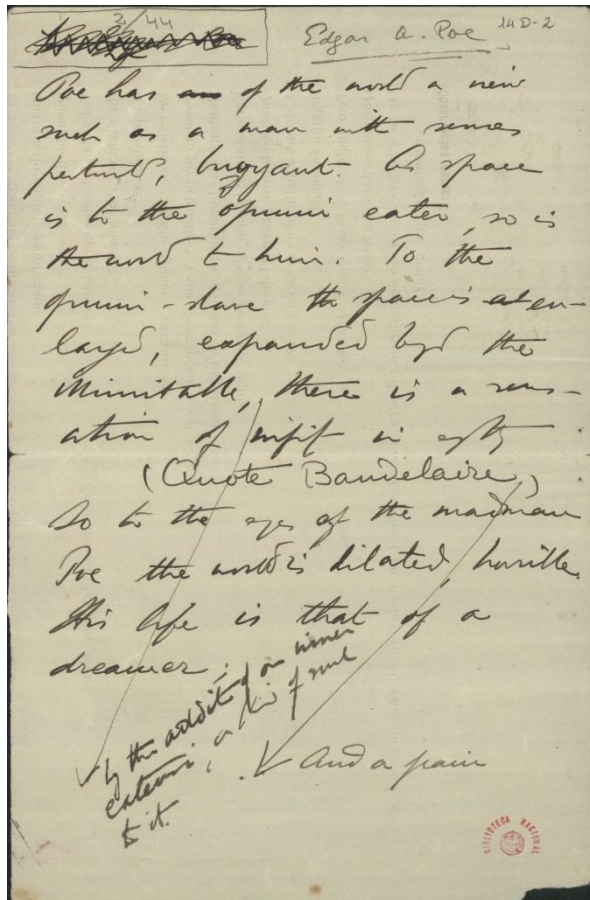 2/44
Edgar A. Poe
14D-2
Poe has of the world a view
such as a man with senses
perturbed, buoyant. As space
is to the opium eater, so is
the world to him. To the
opium-slave the space is en-
larged, expanded beyond the
illimitable, there is a sens-
ation of in
(Quote Baudelaire)
So to the eyes of the madman
Poe the world is dilated, horrible.
His life is that of a
dreamer;
by the addition of an inner
extension, a kind of soul
to it.
And a pain
BIBLIOTECA NACIONAL